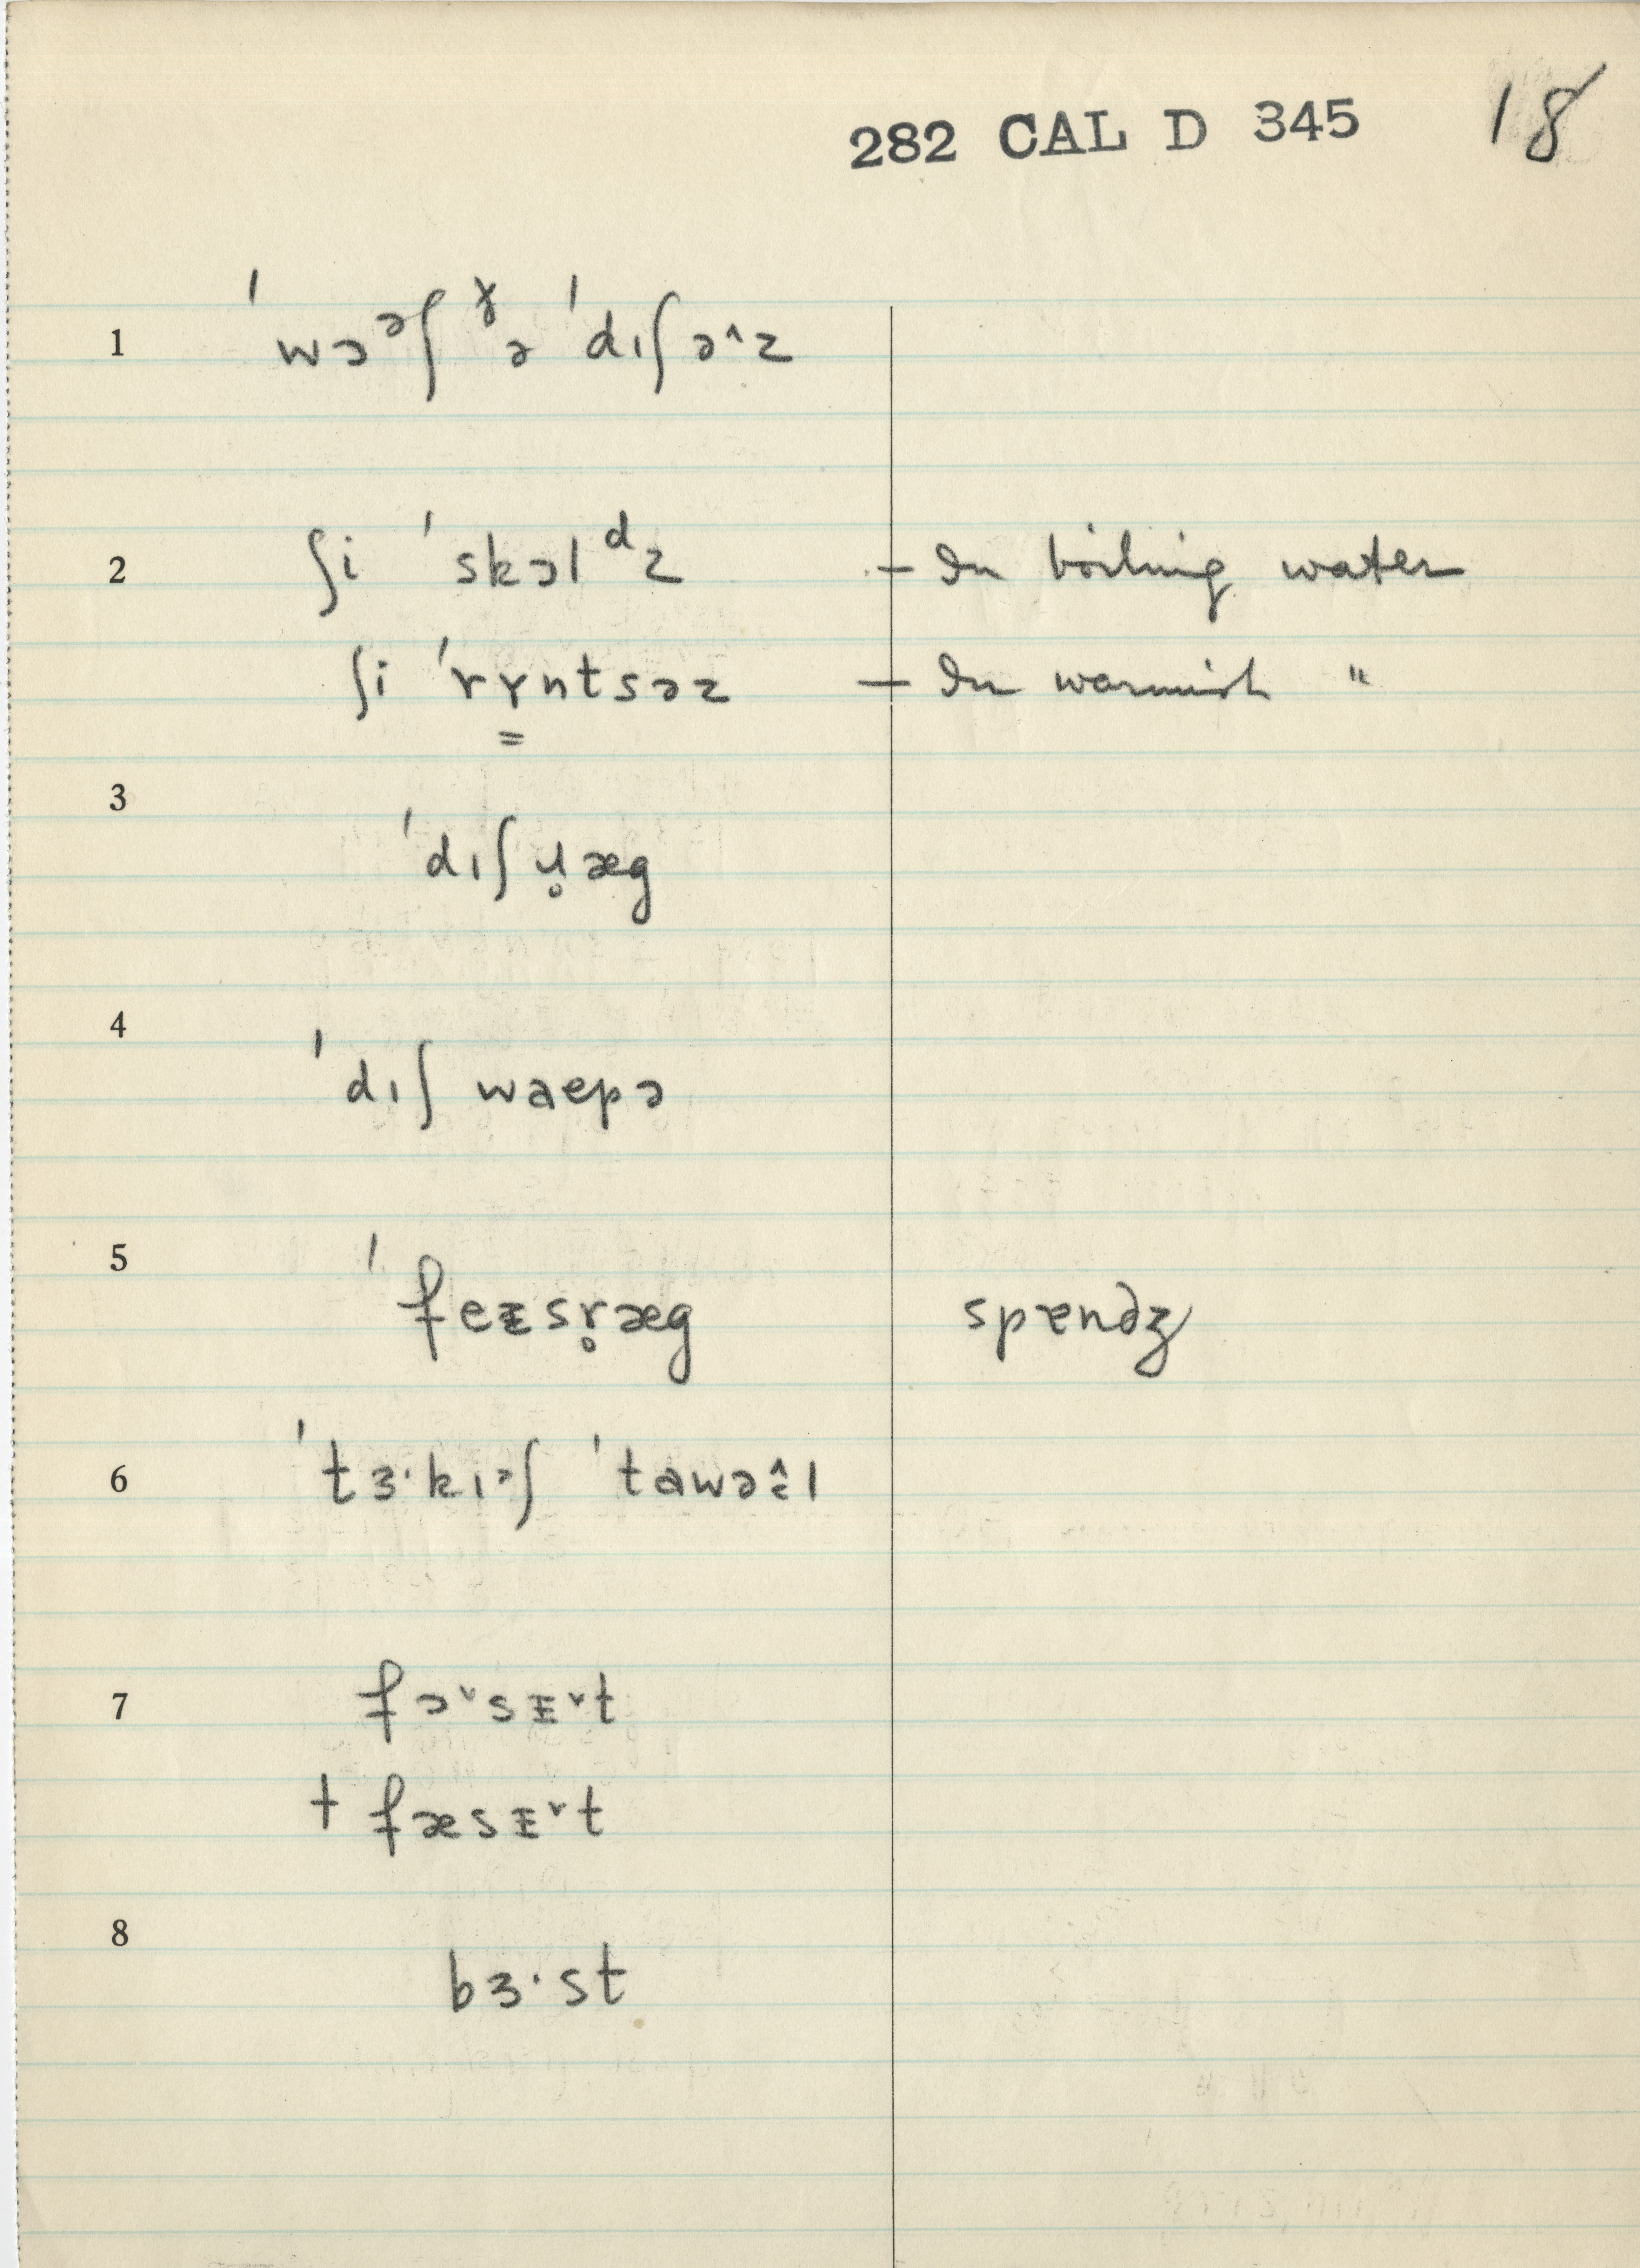 282 CAL D 345 18
1 ˈwɔᵊʃ ᵞə ˈdɪʃəˆz
2 ʃi ˈskɔlᵈz – In boiling water
ʃi ˈrɤ̳ntsəz – In warmish "
3 ˈdɪʃɹ̥æg
4 ˈdɪʃ waepə
5 ˈfeᵻsr̥æg spɛndʒ
6 ˈtɜ·kɪᵊʃ ˈtawəl
7 fɔˇsɪˇt
† fæsɪˇt
8 bɜ·st